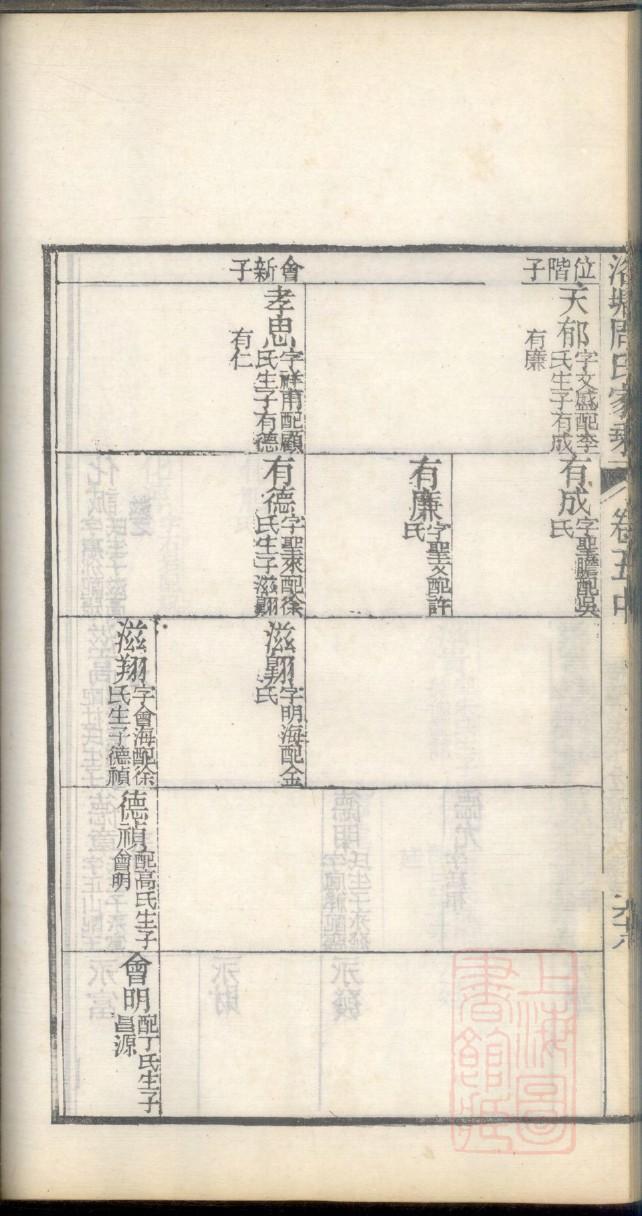 位階子
天郁
字文盛配李
氏生子有成
有廉
會新子
孝思
字祥甫配顧
氏生子有德
有仁
有成
字聖瞻配吳
氏
有廉
字聖文配許
氏
有德
字聖來配徐
氏生子滋翾
滋翾
字明海配金
氏
滋翔
字會海配徐
氏生子德禎
德禎
配高氏生子
會明
會明
配丁氏生子
昌源
周氏家乘
卷五中
上海圖
書館藏